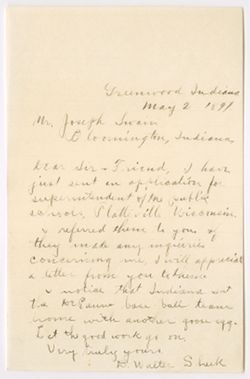 Greenwood Indiana
May 2 1891
Mr. Joseph Swain
Bloomington, Indiana
Dear Sir - Friend, I have
just sent an application for
superintendent of the public
schools, Platteville Wisconsin.
I referred them to you if
they made any inquiries
concerning me, I will appreciate
a letter from you
I notice that Indiana sent
the DePauw base ball team
home with another goose egg.
Let the good work go on.
Very truly yours
D. Walter Sheek